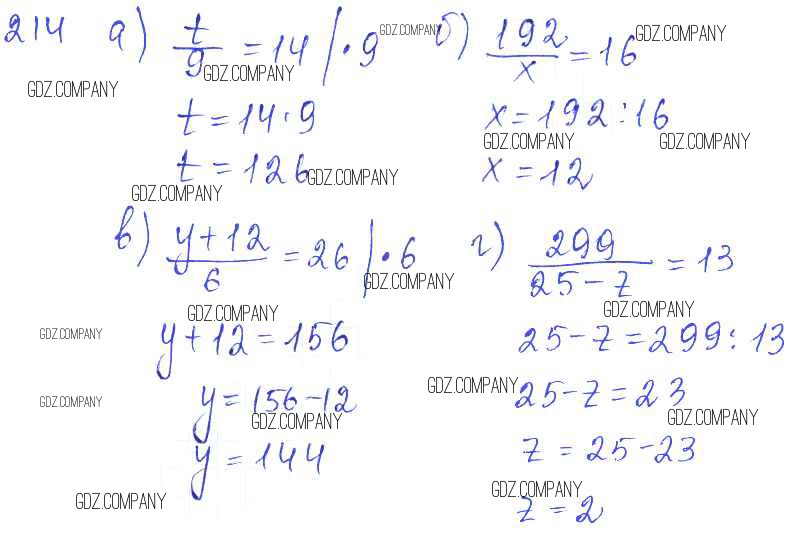 214 а) t/9 = 14 | · 9 GDZ.COMPANY б) 192/x = 16 GDZ.COMPANY
GDZ.COMPANY GDZ.COMPANY
t = 14 · 9 x = 192 : 16
GDZ.COMPANY GDZ.COMPANY
t = 126 GDZ.COMPANY x = 12
GDZ.COMPANY
в) y + 12/6 = 26 | · 6 г) 299/25 - z = 13
GDZ.COMPANY
GDZ.COMPANY GDZ.COMPANY
GDZ.COMPANY y + 12 = 156 25 - z = 299 : 13
GDZ.COMPANY y = 156 - 12 GDZ.COMPANY 25 - z = 23
GDZ.COMPANY GDZ.COMPANY
y = 144 z = 25 - 23
GDZ.COMPANY GDZ.COMPANY
z = 2